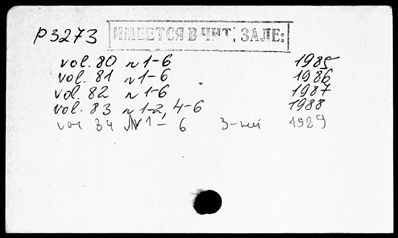 P3273 ИМЕЕТСЯ В ЧИТ. ЗАЛЕ:
vol. 80 N 1-6 1985
vol. 81 N 1-6 1986
vol. 82 N 1-6 1987
vol. 83 N 1-2, 4-6 1988
vol 84 N 1-6 1989